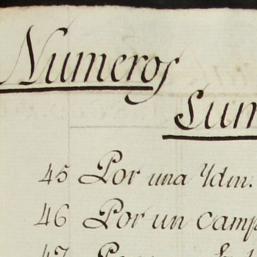 Numeros
Lum
45 Por una Ydm.
46 Por un Camp
47